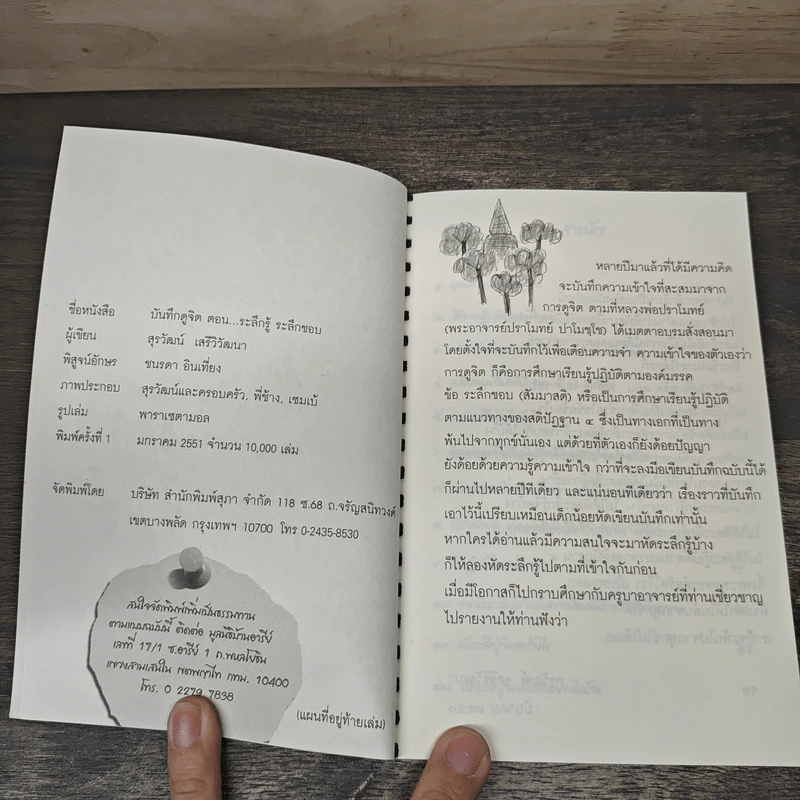 ชื่อหนังสือ บันทึกดูจิต ตอน...ระลึกรู้ ระลึกชอบ
ผู้เขียน สุรวัฒน์ เสรีวิวัฒนา
พิสูจน์อักษร ชนรดา อินเที่ยง
ภาพประกอบ สุรวัฒน์และครอบครัว, พี่ช้าง, เซมเบ้
รูปเล่ม พาราเซตามอล
พิมพ์ครั้งที่ 1 มกราคม 2551 จำนวน 10,000 เล่ม
จัดพิมพ์โดย บริษัท สำนักพิมพ์สุภา จำกัด 118 ซ.68 ถ.จรัญสนิทวงศ์
เขตบางพลัด กรุงเทพฯ 10700 โทร 0-2435-8530
สนใจจัดพิมพ์เพิ่มเป็นธรรมทาน
ตามแบบฉบับนี้ ติดต่อ มูลนิธิบ้านอารีย์
เลขที่ 17/1 ซ.อารีย์ 1 ถ.พหลโยธิน
แขวงสามเสนใน เขตพญาไท กทม. 10400
โทร. 0 2279 7838
(แผนที่อยู่ท้ายเล่ม)
หลายปีมาแล้วที่ได้มีความคิด
จะบันทึกความเข้าใจที่สะสมมาจาก
การดูจิต ตามที่หลวงพ่อปราโมทย์
(พระอาจารย์ปราโมทย์ ปาโมชฺโช) ได้เมตตาอบรมสั่งสอนมา
โดยตั้งใจที่จะบันทึกไว้เพื่อเตือนความจำ ความเข้าใจของตัวเองว่า
การดูจิต ก็คือการศึกษาเรียนรู้ปฏิบัติตามองค์มรรค
ข้อ ระลึกชอบ (สัมมาสติ) หรือเป็นการศึกษาเรียนรู้ปฏิบัติ
ตามแนวทางของสติปัฏฐาน ๔ ซึ่งเป็นทางเอกที่เป็นทาง
พ้นไปจากทุกข์นั่นเอง แต่ด้วยที่ตัวเองก็ยังด้อยปัญญา
ยังด้อยด้วยความรู้ความเข้าใจ กว่าที่จะลงมือเขียนบันทึกฉบับนี้ได้
ก็ผ่านไปหลายปีทีเดียว และแน่นอนทีเดียวว่า เรื่องราวที่บันทึก
เอาไว้นี้เปรียบเหมือนเด็กน้อยหัดเขียนบันทึกเท่านั้น
หากใครได้อ่านแล้วมีความสนใจจะมาหัดระลึกรู้บ้าง
ก็ให้ลองหัดระลึกรู้ไปตามที่เข้าใจกันก่อน
เมื่อมีโอกาสก็ไปกราบศึกษากับครูบาอาจารย์ที่ท่านเชี่ยวชาญ
ไปรายงานให้ท่านฟังว่า